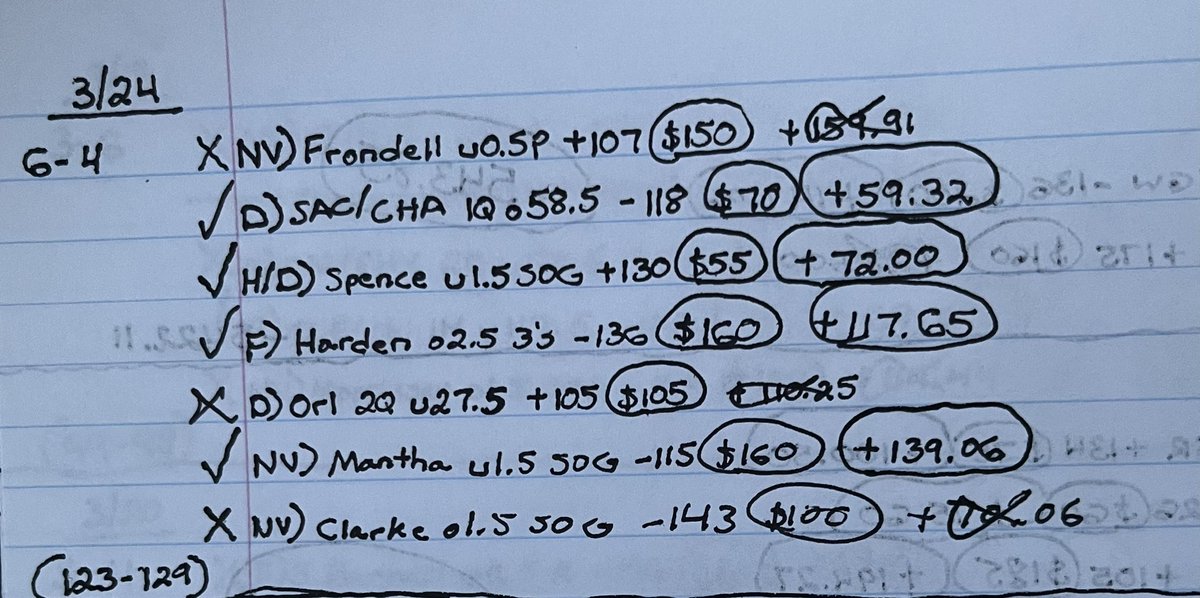 3/24
6-4 X NV) Frondell u0.5P +107 $150 +
✓ D) SAC/CHA 1Q o58.5 -118 $70 +59.32
✓ H/D) Spence u1.5 SOG +130 $55 +72.00
✓ F) Harden o2.5 3's -136 $160 +117.65
X D) Orl 2Q u27.5 +105 $105 +110.25
✓ NV) Mantha u1.5 SOG -115 $160 +139.06
X NV) Clarke o1.5 SOG -143 $100 +
(123-129)